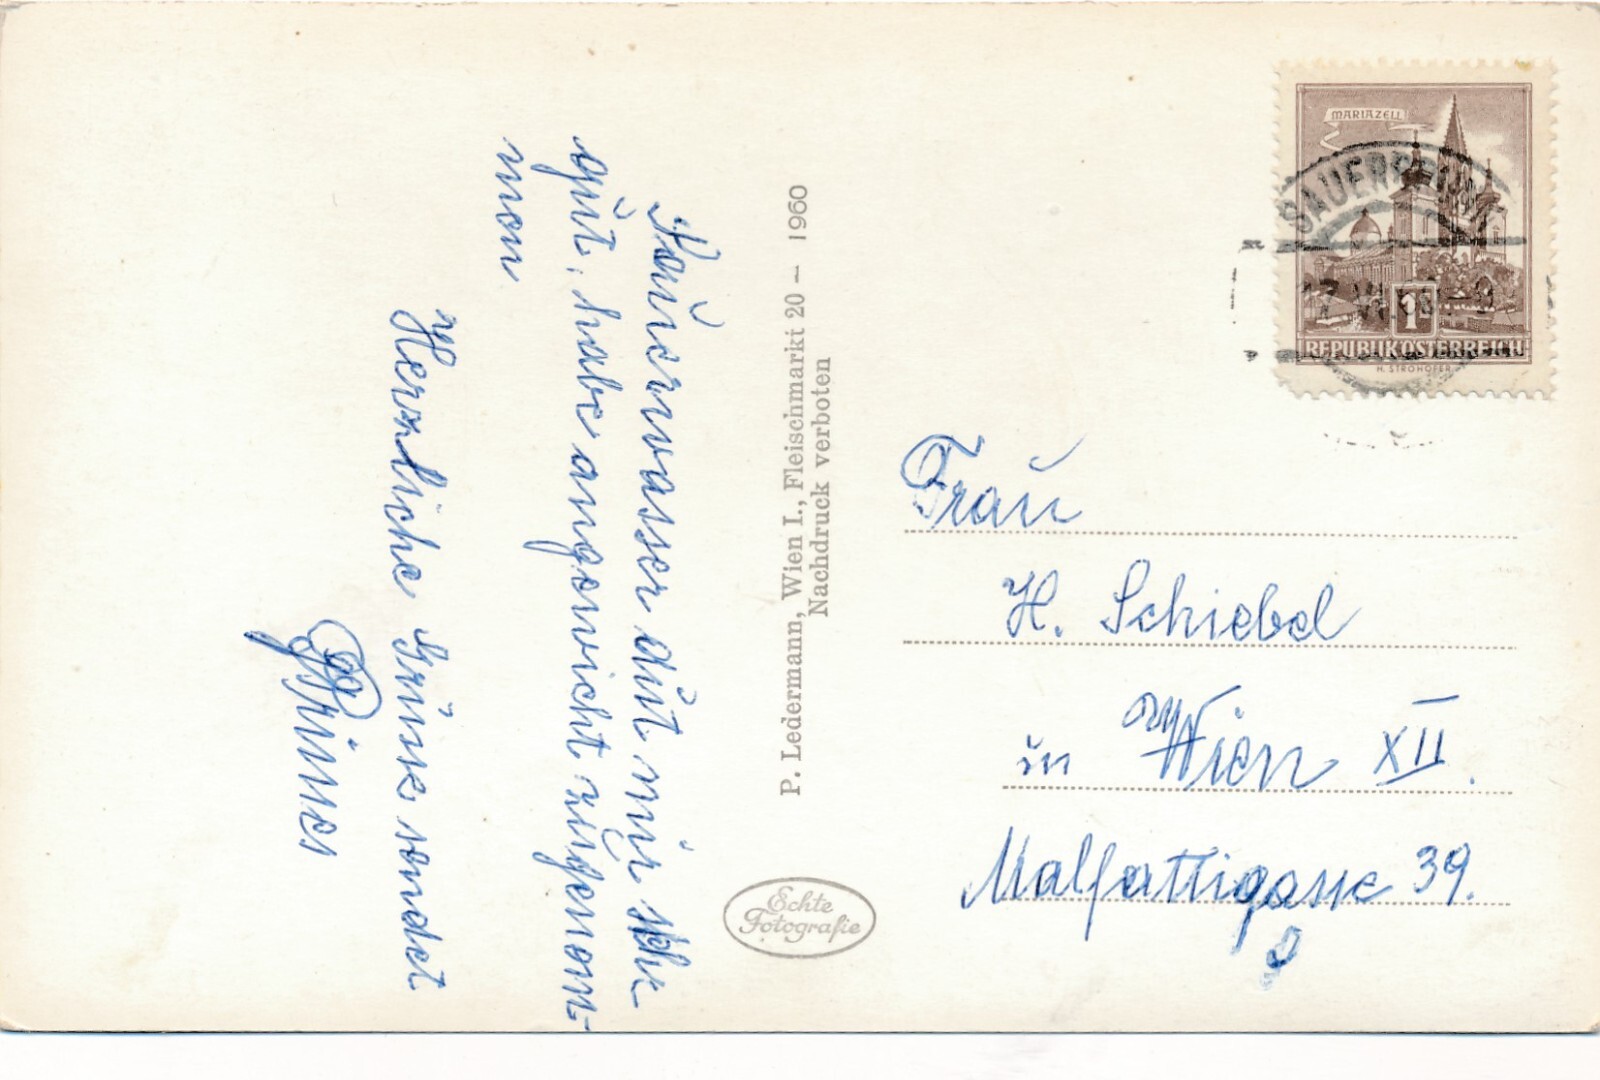 Sauerwasser dut mir sehr
gut, habe angewicht zugenom-
men
Herzliche Grüsse sendet
P. Ledermann, Wien I., Fleischmarkt 20 — 1960
Nachdruck verboten
Echte
Fotografie
MARIAZELL
SAUERBRUNN
1
REPUBLIK ÖSTERREICH
H. STROHOFER
Frau
H. Schiebel
in Wien XII.
Malfattigasse 39.